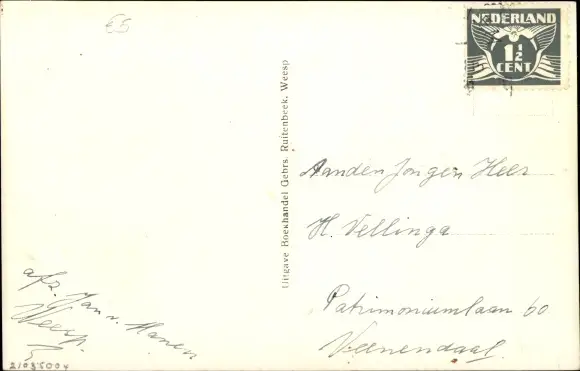 €5
NEDERLAND
1½
CENT
Uitgave Boekhandel Gebrs. Ruitenbeek, Weesp
Aan den Jongen Heer
H. Vellinga
Patrimoniumlaan 60
Veenendaal.
afz. Jan v. Manen
Weesp.
21035004